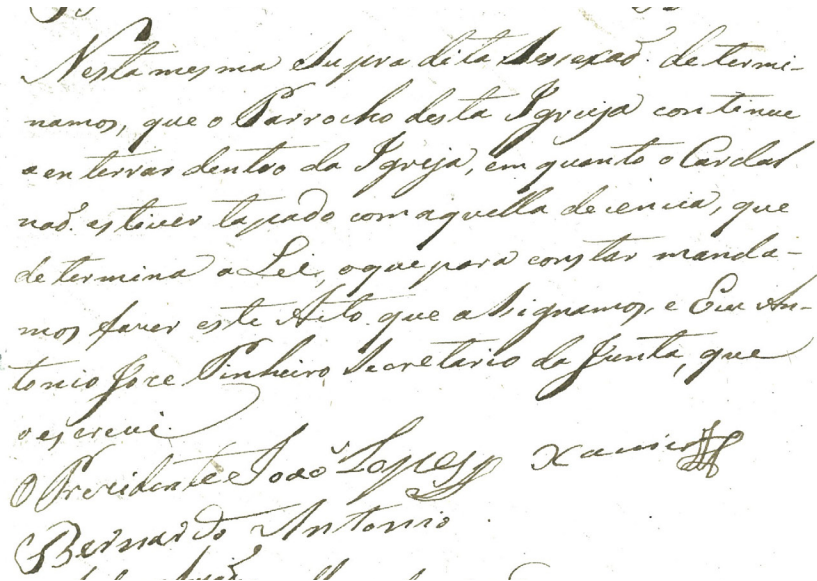 Nesta mesma e supra dita Sessaõ determi-
namos, que o Parrocho desta Igreja continue
a enterrar dentro da Igreja, em quanto o Cardal
naõ estiver tapado com aquella decencia, que
determina a Lei, o que para constar manda-
mos fazer este Acto que assignamos, e Eu An-
tonio Joze Pinheiro, Secretario da Junta, que
o escrevi.
O Prezidente Joaõ Lopes Xavier
Bernardo Antonio